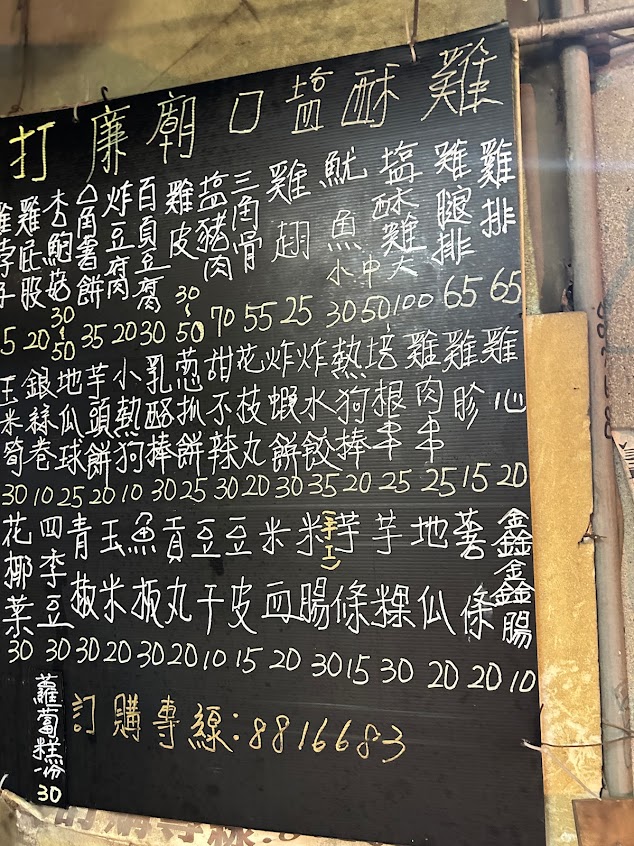 打廉廟口塩酥雞
雞排 65
雞腿排 65
塩酥雞 大 100
中 50
小 30
魷魚
雞翅 25
三角骨 55
塩豬肉 70
雞皮 30~50
百頁豆腐 30
炸豆腐 20
△角薯餅 35
杏鮑菇 30~50
雞屁股 20
雞心 20
雞胗 15
雞肉串 25
培根串 25
熱狗棒 20
炸水餃 35
炸蝦餅 30
花枝丸 20
甜不辣 30
葱抓餅 25
乳酪棒 30
小熱狗 10
芋頭餅 20
地瓜球 25
銀絲卷 10
玉米筍 30
鑫鑫腸 10
薯條 20
地瓜 20
芋粿 30
芋條 15
(手工)
米腸 30
米血 20
豆皮 15
豆干 10
貢丸 20
魚板 30
玉米 20
青椒 30
四李豆 30
花椰菜 30
蘿蔔糕份 30
訂購專線:8816683